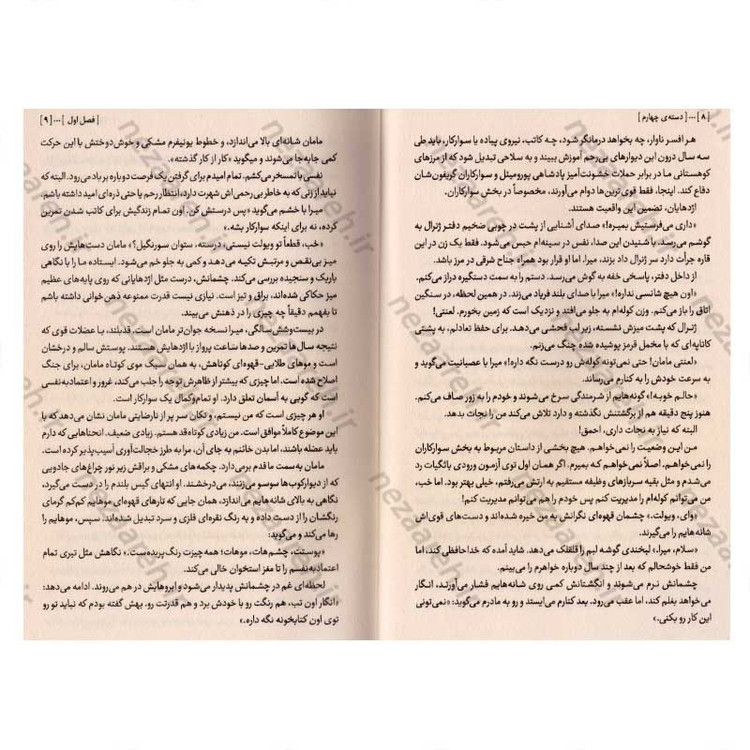 [ ۸ ]... [ دسته‌ی چهارم ]
هر افسر ناوار، چه بخواهد درمانگر شود، چه کاتب، نیروی پیاده یا سوارکار، باید طی
سه سال درون این دیوارهای بی‌رحم آموزش ببیند و به سلاحی تبدیل شود که از مرزهای
کوهستانی ما در برابر حملات خشونت‌آمیز پادشاهی پورومیئل و سوارکاران گریفون‌شان
دفاع کند. اینجا، فقط قوی‌ترین‌ها دوام می‌آورند، مخصوصاً در بخش سوارکاران.
اژدهایان، تضمین این واقعیت هستند.
«داری می‌فرستیش بمیره!» صدای آشنایی از پشت در چوبی ضخیم دفتر ژنرال به
گوشم می‌رسد. با شنیدن این صدا، نفس در سینه‌ام حبس می‌شود. فقط یک زن در این
قاره جرأت دارد سر ژنرال داد بزند، میرا. اما او قرار بود همراه جناح شرقی در مرز باشد.
از داخل دفتر، پاسخی خفه به گوش می‌رسد. دستم را به سمت دستگیره دراز می‌کنم.
«اون هیچ شانسی نداره!» میرا با صدای بلند فریاد می‌زند. در همین لحظه، در سنگین
اتاق را باز می‌کنم. وزن کوله‌ام به جلو می‌افتد و نزدیک است که زمین بخورم. لعنتی!
ژنرال که پشت میزش نشسته، زیر لب فحشی می‌دهد. برای حفظ تعادلم، به پشتی
کاناپه‌ای که با مخمل قرمز پوشیده شده چنگ می‌زنم.
«لعنتی مامان! حتی نمی‌تونه کوله‌ش رو درست نگه داره!» میرا با عصبانیت می‌گوید و
به سرعت خودش را به کنارم می‌رساند.
«حالم خوبه!» گونه‌هایم از شرمندگی سرخ می‌شوند و خودم را به زور صاف می‌کنم.
هنوز پنج دقیقه هم از برگشتنش نگذشته و دارد تلاش می‌کند من را نجات بدهد.
البته که نیاز به نجات داری، احمق!
من این وضعیت را نمی‌خواهم. هیچ بخشی از داستان مربوط به بخش سوارکاران
را نمی‌خواهم. اصلاً نمی‌خواهم که بمیرم. اگر همان اول توی آزمون ورودی باثگیات رد
می‌شدم و مثل بقیه سربازهای وظیفه مستقیم به ارتش می‌رفتم، خیلی بهتر بود. اما خب،
من می‌توانم کوله‌ام را مدیریت کنم پس خودم را هم می‌توانم مدیریت کنم!
«وای، ویولت.» چشمان قهوه‌ای نگرانش به من خیره شده‌اند و دست‌های قوی‌اش
شانه‌هایم را می‌گیرند.
«سلام، میرا.» لبخندی گوشه لبم را قلقلک می‌دهد. شاید آمده که خداحافظی کند، اما
من فقط خوشحالم که بعد از چند سال دوباره خواهرم را می‌بینم.
چشمانش نرم می‌شوند و انگشتانش کمی روی شانه‌هایم فشار می‌آورند، انگار
می‌خواهد بغلم کند، اما عقب می‌رود. بعد کنارم می‌ایستد و رو به مادرم می‌گوید: «نمی‌تونی
این کار رو بکنی.»
[ فصل اول ]... [ ۹ ]
مامان شانه‌ای بالا می‌اندازد، و خطوط یونیفرم مشکی و خوش‌دوختش با این حرکت
کمی جابه‌جا می‌شوند و میگوید «کار از کار گذشته».
نفسی با تمسخر می‌کشم. تمام امیدم برای گرفتن یک فرصت دوباره بر باد رود. البته که
نباید از زنی که به خاطر بی‌رحمی‌اش شهرت دارد، انتظار رحم یا حتی ذره‌ای امید داشته باشم.
میرا با خشم می‌گوید «پس درستش کن. اون تمام زندگیش برای کاتب شدن تمرین
کرده، نه برای اینکه سوارکار بشه.»
«خب، قطعاً تو ویولت نیستی، درسته، ستوان سورنگیل؟» مامان دست‌هایش را روی
میز بی‌نقص و مرتبش تکیه می‌دهد و کمی به جلو خم می‌شود. ایستاده ما را با نگاهی
باریک و سنجیده بررسی می‌کند. چشمانش، درست مثل اژدهایانی که روی پایه‌های عظیم
میز حکاکی شده‌اند، براق و تیز است. نیازی نیست قدرت ممنوعه ذهن‌خوانی داشته باشم
تا بفهمم دقیقاً چه چیزی را در ذهنش می‌بیند.
در بیست‌وشش سالگی، میرا نسخه جوان‌تر مامان است. قدبلند، با عضلات قوی که
نتیجه سال‌ها تمرین و صدها ساعت پرواز با اژدهایش هستند. پوستش سالم و درخشان
است و موهای طلایی-قهوه‌ای کوتاهش، به همان سبک موی کوتاه مامان، برای جنگ
اصلاح شده است. اما چیزی که بیشتر از ظاهرش توجه را جلب می‌کند، غرور و اعتماد‌به‌نفسی
است که گویی به آسمان تعلق دارد. او تمام‌وکمال یک سوارکار است.
او هر چیزی است که من نیستم، و تکان سر پر از نارضایتی مامان نشان می‌دهد که با
این موضوع کاملاً موافق است. من زیادی کوتاه‌قد هستم. زیادی ضعیف. انحناهایی که دارم
باید عضله باشند، اما بدن خائنم به جای آن، مرا به طرز خجالت‌آوری آسیب‌پذیر کرده است.
مامان به سمت ما قدم برمی‌دارد. چکمه‌های مشکی و براقش زیر نور چراغ‌های جادویی
که از دیوارکوب‌ها سوسو می‌زنند، می‌درخشند. او انتهای گیس بلندم را در دست می‌گیرد،
نگاهی به بالای شانه‌هایم می‌اندازد، همان جایی که تارهای قهوه‌ای موهایم کم‌کم گرمای
رنگشان را از دست داده و به رنگ نقره‌ای فلزی و سرد تبدیل شده‌اند. سپس، موهایم را
رها می‌کند و می‌گوید:
«پوستت، چشم‌هات، موهات؛ همه‌چیزت رنگ‌پریده‌ست.» نگاهش مثل تیری تمام
اعتماد‌به‌نفسم را تا مغز استخوان خالی می‌کند.
لحظه‌ای غم در چشمانش پدیدار می‌شود و ابروهایش در هم می‌روند. ادامه می‌دهد:
«انگار اون تب، هم رنگت رو با خودش برد و هم قدرتت رو. بهش گفته بودم که نباید تو رو
توی اون کتابخونه نگه داره.»
nezaareh.ir